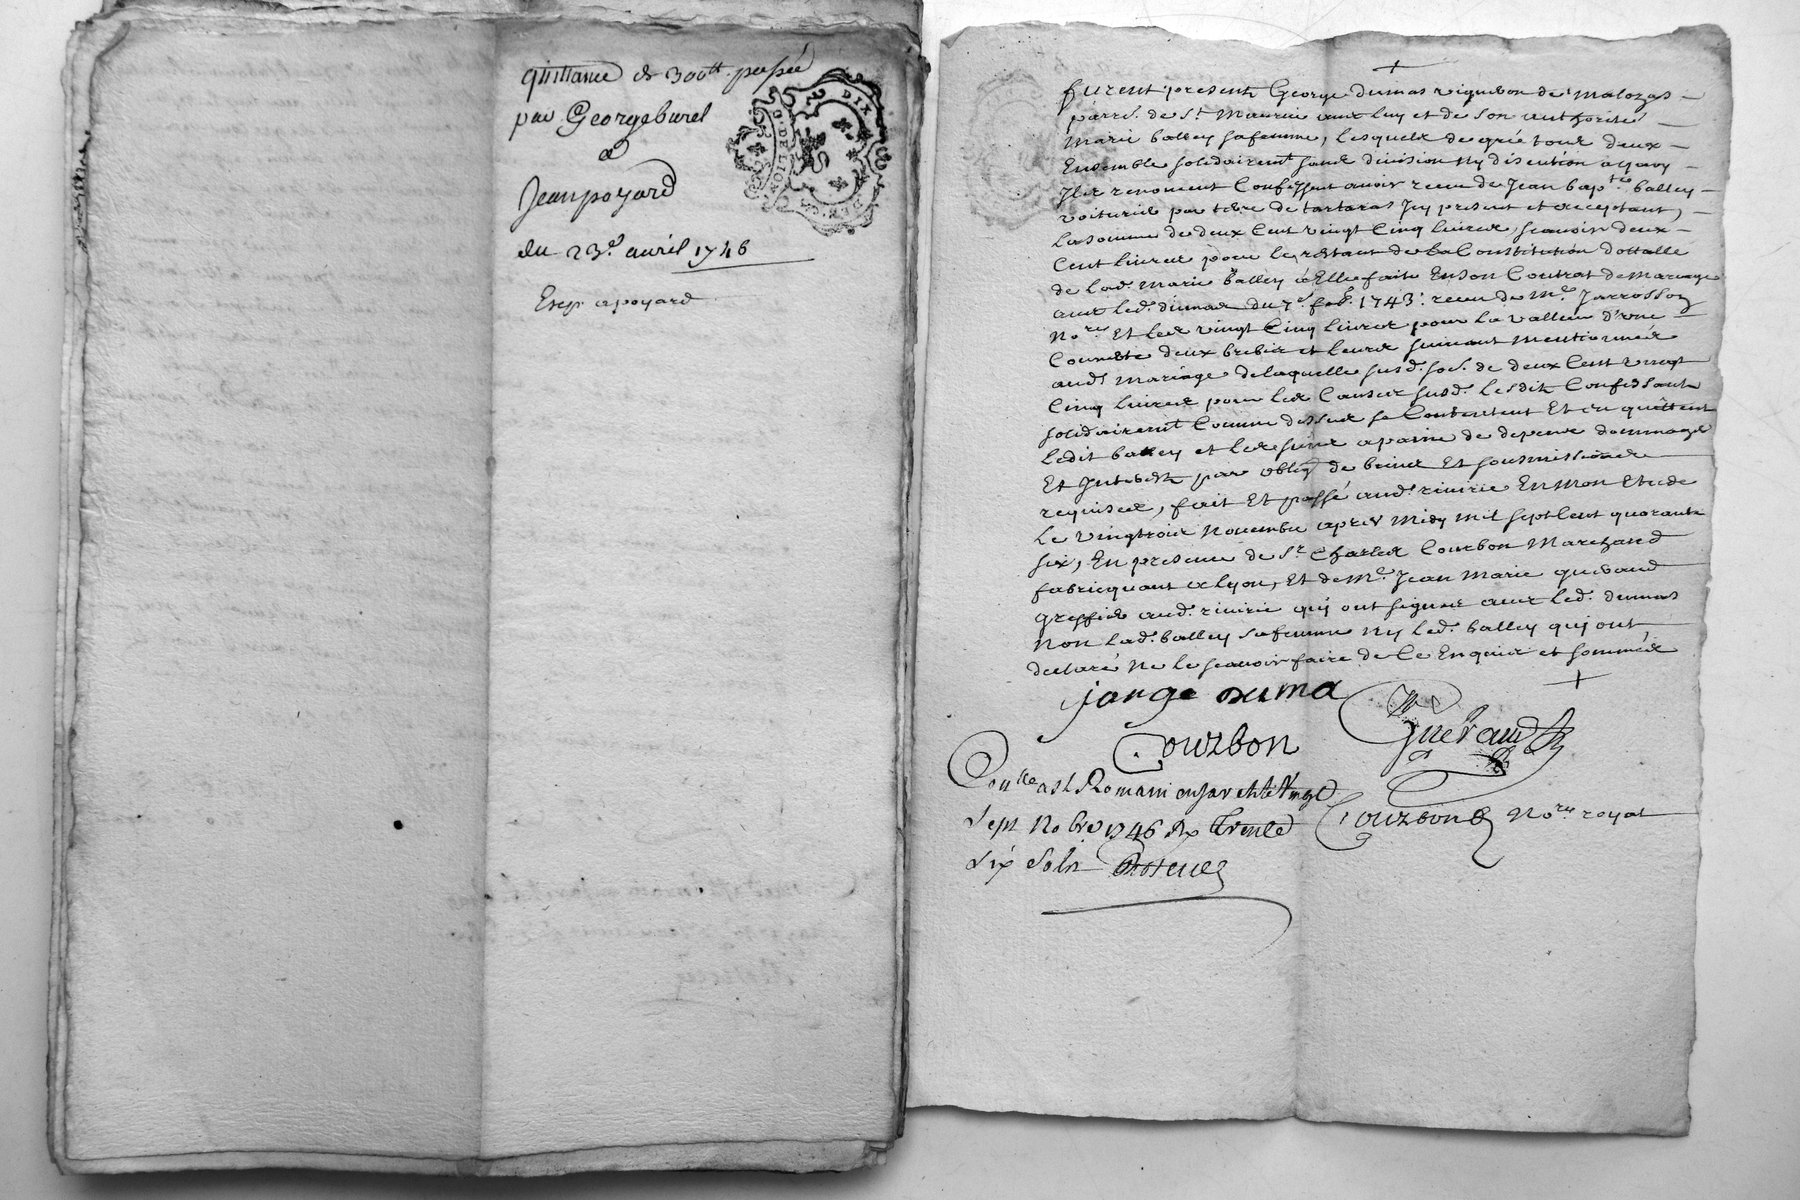 quittance de 300tt. passée
par George burel
a
Jean poyard
du 23e. avril 1746
Exp. a poyard
DIX
G. DE LION
DEN.
furent presents George dumas vigneron de malozas
parrs. de St. Maurice avec luy et de son authorité
Marie balley sa femme, lesquels de gré tous deux
Ensemble solidairemt. sans division ny discution a quoy
Ils renoncent Confessent avoir receu de Jean bapte. balley
voiturier par terre de tartaras Icy present et acceptant,
la somme de deux Cent vingt Cinq livres, scavoir deux
Cent livres pour le restant de la Constitution dottalle
de lad. marie balley a Elle faite En son Contrat de Mariage
avec led. dumas du 7e. feb. 1743. receu de Me. Jarrosson
Nore. Et les vingt Cinq livres pour la valleur d'une
Couverte deux brebis et leurs suivant mentionnés
aud. mariage de laquelle susd. so. de deux Cent vingt
Cinq livres pour les Causes susd. lesdits Confessants
solidairemt. Comme dessus se Contentent Et en quittent
ledit balley et les siens a paine de depens dommages
Et Interests par oblig. de biens Et sousmissions
requises, fait Et passé aud. rivirie En mon Etude
le vingtrois Novembre apres Midy mil sept Cent quarante
six, En presence de Sr. Charles Courbon Marchand
fabricquant a lyon, Et de Me. Jean Marie queraud
greffier aud. rivirie qui ont signés avec led. dumas
Non lad. balley sa femme ny led. balley qui ont
declaré Ne le scavoir faire de Ce Enquis et sommés
jorge duma
Gueraud
Courbon
Conlle. ast Romain en Jarets le Vingt
Sept Nobre 1746 Rx Trente
Courbon Nore. royal
six Sols